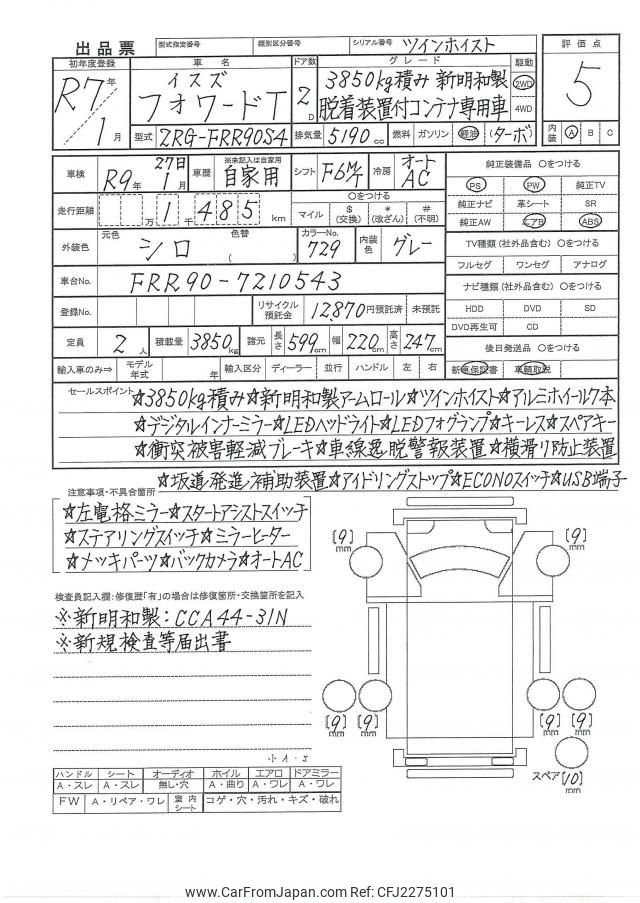 出品票 型式指定番号 類別区分番号 シリアル番号 ツインホイスト
初年度登録 車名 ドア数 グレード 駆動 評価点
R7年 1月 イスズ フォワードT 2D 3850kg積み 新明和製 脱着装置付コンテナ専用車 2WD 4WD 5
型式 2RG-FRR90S4 排気量 5190cc 燃料 ガソリン 軽油 (ターボ) 内装 A B C
車検 R9年 1月 27日 車歴 ※未記入は自家用 自家用 シフト F6M/T 冷房 オートAC 純正装備品 〇をつける
PS PW 純正TV
走行距離 万 1千 485 km 〇をつける マイル $(交換) *(改ざん) #(不明) 純正ナビ 革シート SR
純正AW エアB ABS
外装色 元色 シロ 色替 ( ) カラーNo. 729 内装色 グレー TV種類(社外品含む)〇をつける
フルセグ ワンセグ アナログ
車台No. FRR90-7210543 ナビ種類(社外品含む)〇をつける
登録No. リサイクル預託金 12,870円預託済 未預託 HDD DVD SD
DVD再生可 CD
定員 2人 積載量 3850kg 諸元 長さ 599cm 幅 220cm 高さ 247cm 後日発送品 〇をつける
輸入車のみ⇒ モデル年式 年 輸入区分 ディーラー 並行 ハンドル 左 右 新車保証書 車輌取説
セールスポイント ☆3850kg積み☆新明和製アームロール☆ツインホイスト☆アルミホイール7本
☆デジタルインナーミラー☆LEDヘッドライト☆LEDフォグランプ☆キーレス☆スペアキー
☆衝突被害軽減ブレーキ☆車線逸脱警報装置☆横滑り防止装置
☆坂道発進補助装置☆アイドリングストップ☆ECONOスイッチ☆USB端子
注意事項・不具合箇所
☆左電格ミラー☆スタートアシストスイッチ
☆ステアリングスイッチ☆ミラーヒーター
☆メッキパーツ☆バックカメラ☆オートAC
[9]mm [9]mm
検査員記入欄:修復歴「有」の場合は修復箇所・交換箇所を記入
※新明和製:CCA44-31N
※新規検査等届出書
[9]mm [9]mm [9]mm [9]mm
小A-S
スペア[10]mm
ハンドル シート オーディオ ホイル エアロ ドアミラー
A・スレ A・スレ 無し・穴 A・曲り A・ワレ A・ワレ
FW A・リペア・ワレ 室内シート コゲ・穴・汚れ・キズ・破れ
www.CarFromJapan.com Ref: CFJ2275101